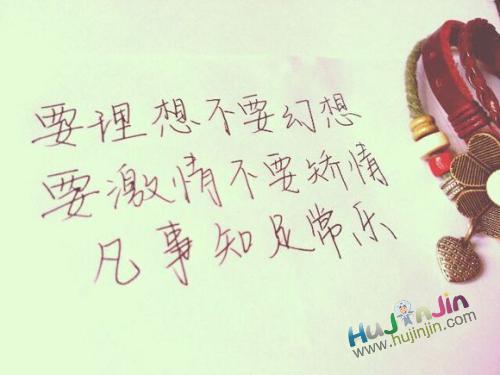 要理想不要幻想
要激情不要矫情
凡事知足常乐
HuJinJin
www.hujinjin.com